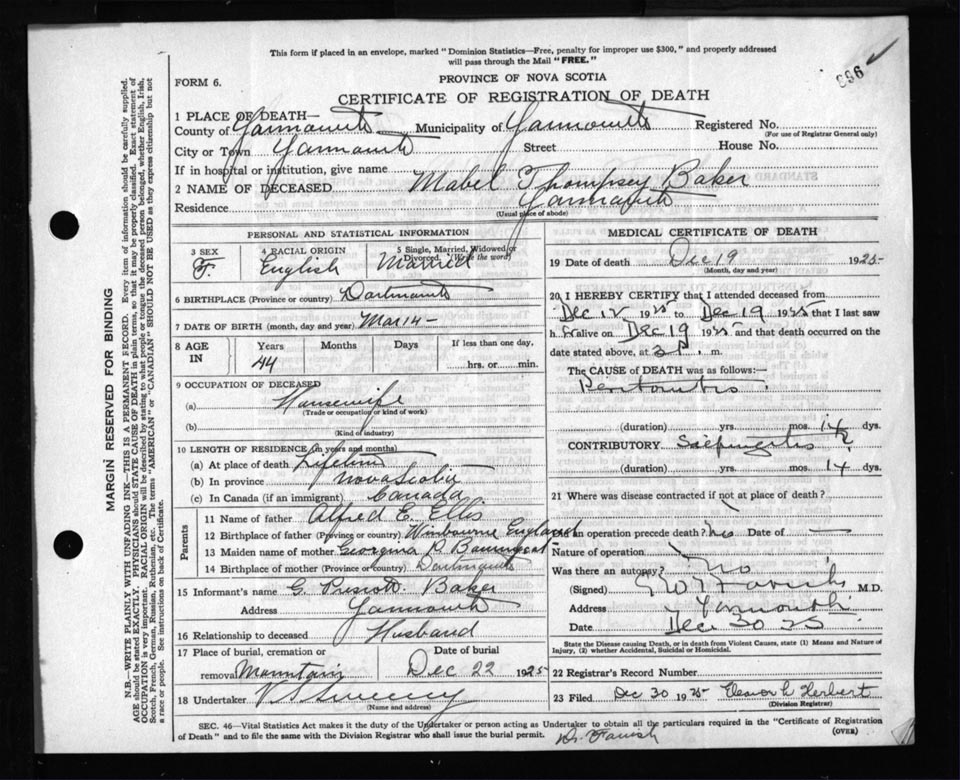 This form if placed in an envelope, marked "Dominion Statistics—Free, penalty for improper use $300," and properly addressed
will pass through the Mail "FREE."
896
FORM 6.
PROVINCE OF NOVA SCOTIA
CERTIFICATE OF REGISTRATION OF DEATH
MARGIN RESERVED FOR BINDING
N.B.—WRITE PLAINLY WITH UNFADING INK—THIS IS A PERMANENT RECORD. Every item of information should be carefully supplied.
AGE should be stated EXACTLY. PHYSICIANS should STATE CAUSE OF DEATH in plain terms, so that it may be properly classified. Exact statement of
OCCUPATION is very important. RACIAL ORIGIN will be described by stating to what people & tongue the deceased person belonged, whether English, Irish,
Scotch, French, German, Russian, Ruthenian, etc. The terms "AMERICAN" or "CANADIAN" SHOULD NOT BE USED as they express citizenship but not
a race or people. See instructions on back of Certificate.
1 PLACE OF DEATH—
County of Yarmouth Municipality of Yarmouth Registered No.
(For use of Registrar General only)
City or Town Yarmouth Street House No.
If in hospital or institution, give name
2 NAME OF DECEASED Mabel Thompsey Baker
Residence Yarmouth
(Usual place of abode)
PERSONAL AND STATISTICAL INFORMATION
3 SEX F. 4 RACIAL ORIGIN English 5 Single, Married, Widowed or Divorced. (Write the word) Married
6 BIRTHPLACE (Province or country) Dartmouth
7 DATE OF BIRTH (month, day and year) Mar 14 -
8 AGE IN Years 44 Months Days If less than one day, hrs. or min.
9 OCCUPATION OF DECEASED
(a) Housewife
(Trade or occupation or kind of work)
(b)
(Kind of industry)
10 LENGTH OF RESIDENCE (in years and months)
(a) At place of death Lifetime
(b) In province Nova Scotia
(c) In Canada (if an immigrant) Canada
Parents
11 Name of father Alfred E. Ellis
12 Birthplace of father (Province or country) England
13 Maiden name of mother Georgina
14 Birthplace of mother (Province or country) Dartmouth
15 Informant's name G. Prescott Baker
Address Yarmouth
16 Relationship to deceased Husband
17 Place of burial, cremation or removal Mountain Date of burial Dec 22 1925
18 Undertaker V. S. Sweeny
(Name and address)
MEDICAL CERTIFICATE OF DEATH
19 Date of death Dec 19 1925
(Month, day and year)
20 I HEREBY CERTIFY that I attended deceased from
Dec 12 1925 to Dec 19 1925 that I last saw
h er alive on Dec 19 1925 and that death occurred on
date stated above, at 3 P. m.
The CAUSE of DEATH was as follows:—
Peritonitis
(duration) yrs. mos. dys.
CONTRIBUTORY Salpingitis
(duration) yrs. mos. 14 dys.
21 Where was disease contracted if not at place of death?
Did an operation precede death? no Date of
Nature of operation
Was there an autopsy? No
(Signed) Farish M.D.
Address Yarmouth
Date Dec 30 25
State the Disease causing Death, or in death from Violent Causes, state (1) Means and Nature of
Injury, (2) whether Accidental, Suicidal or Homicidal.
22 Registrar's Record Number
23 Filed Dec 30 1925 Herbert
(Division Registrar)
SEC. 46—Vital Statistics Act makes it the duty of the Undertaker or person acting as Undertaker to obtain all the particulars required in the "Certificate of Registration
of Death" and to file the same with the Division Registrar who shall issue the burial permit.
Dr. Farish
(OVER)